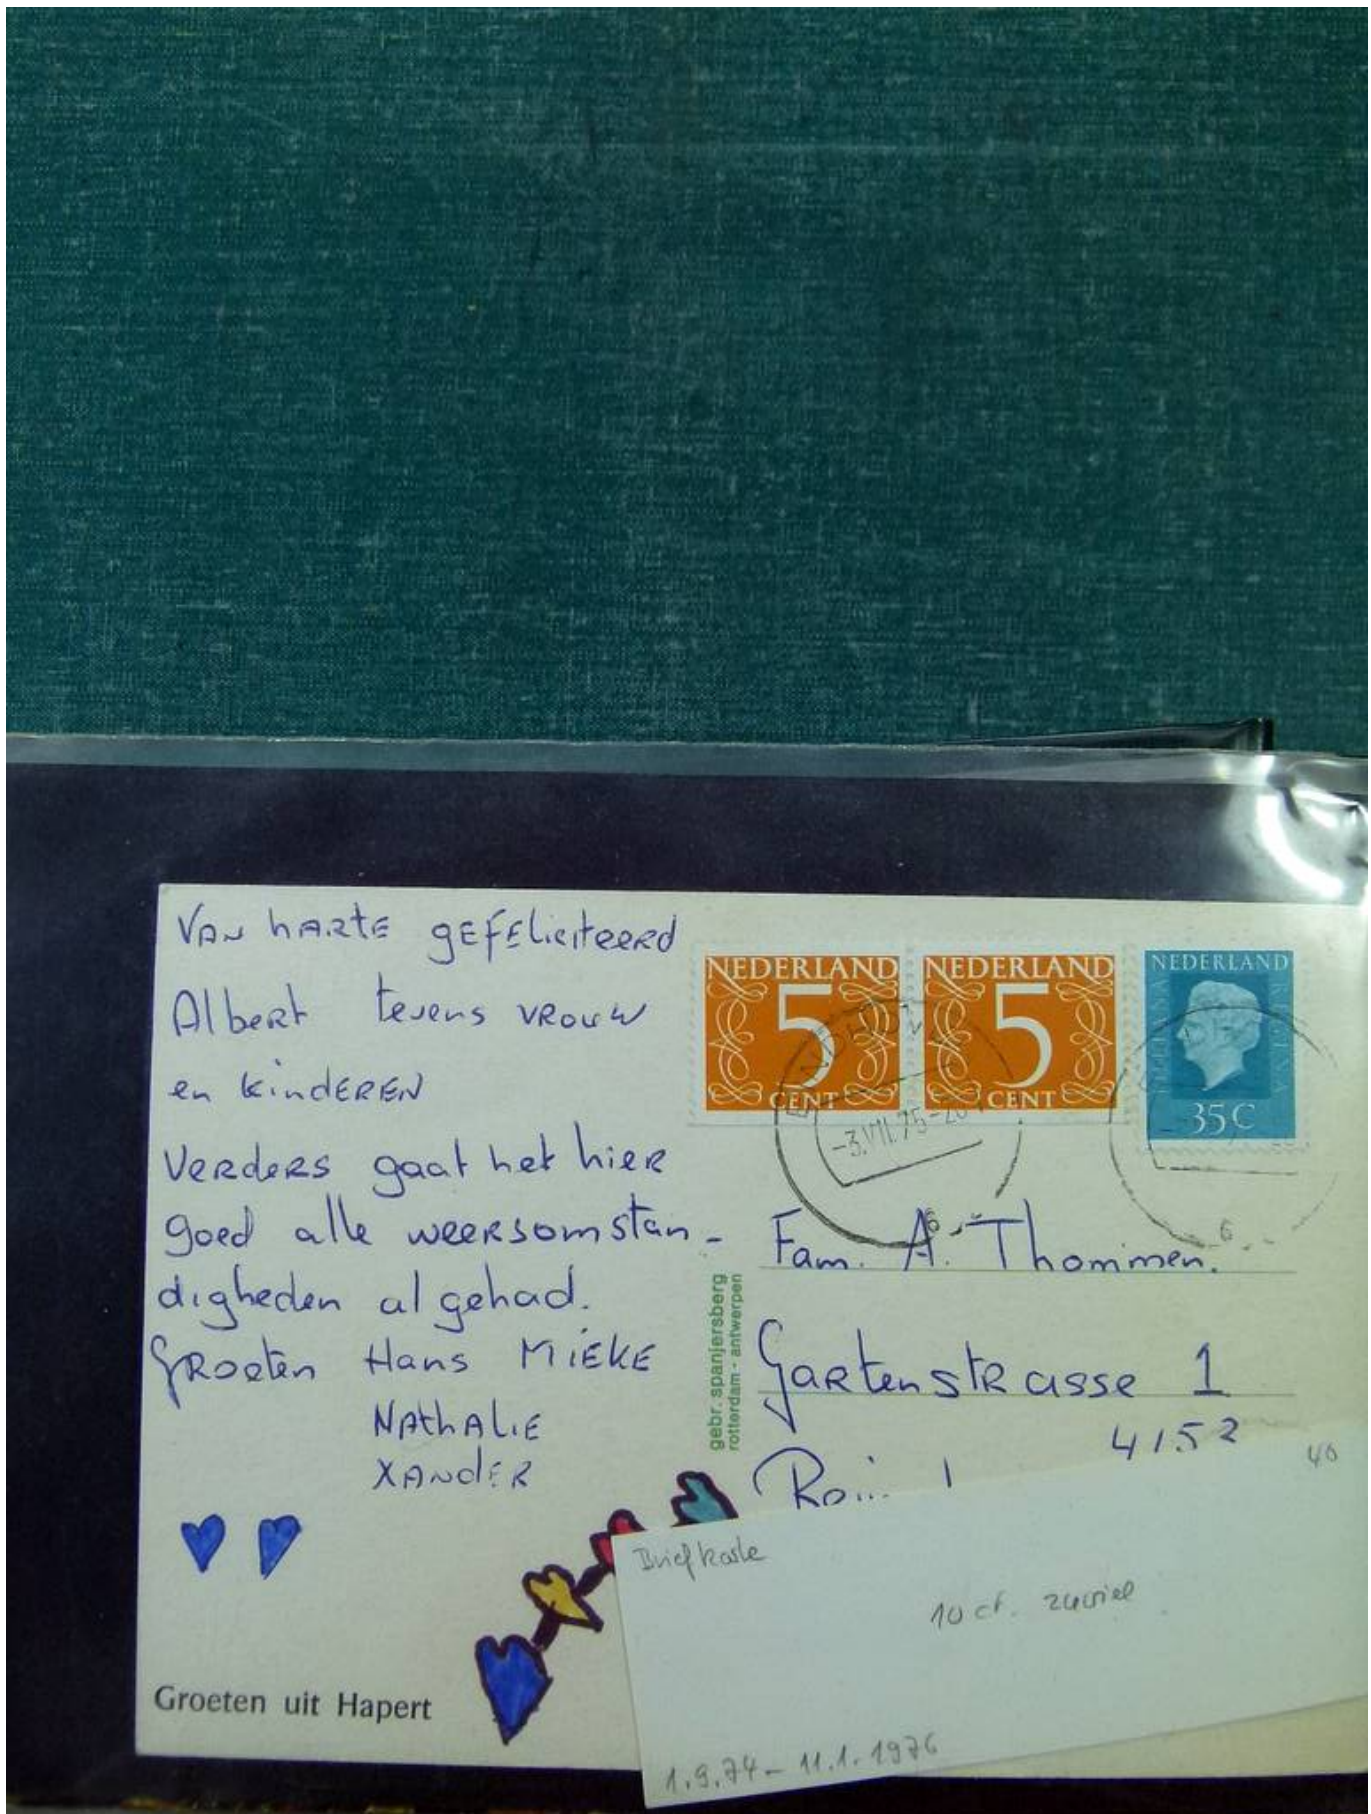 VAN hARtE gEfEliciteerd
Albert tevens vRouw
en kindEREN
VERdeRS gaat het hieR
goed alle weeRsomstan-
digheden al gehad.
gRoeten Hans MiEKE
NAthALiE
XANdER
Groeten uit Hapert
gebr. spanjersberg
rotterdam - antwerpen
NEDERLAND
5
CENT
NEDERLAND
5
CENT
NEDERLAND
35 C
-3.VII.75-20
6
6
Fam. A. Thommen.
GaRtenstRasse 1
4152
40
Briefkarte
10 ct. zuviel
1.9.74 - 11.1.1976